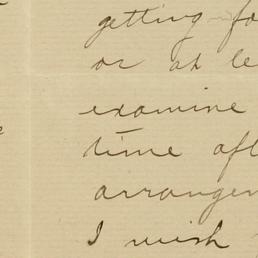 getting fo
or at le
examine
time aft
arrangem
I wish